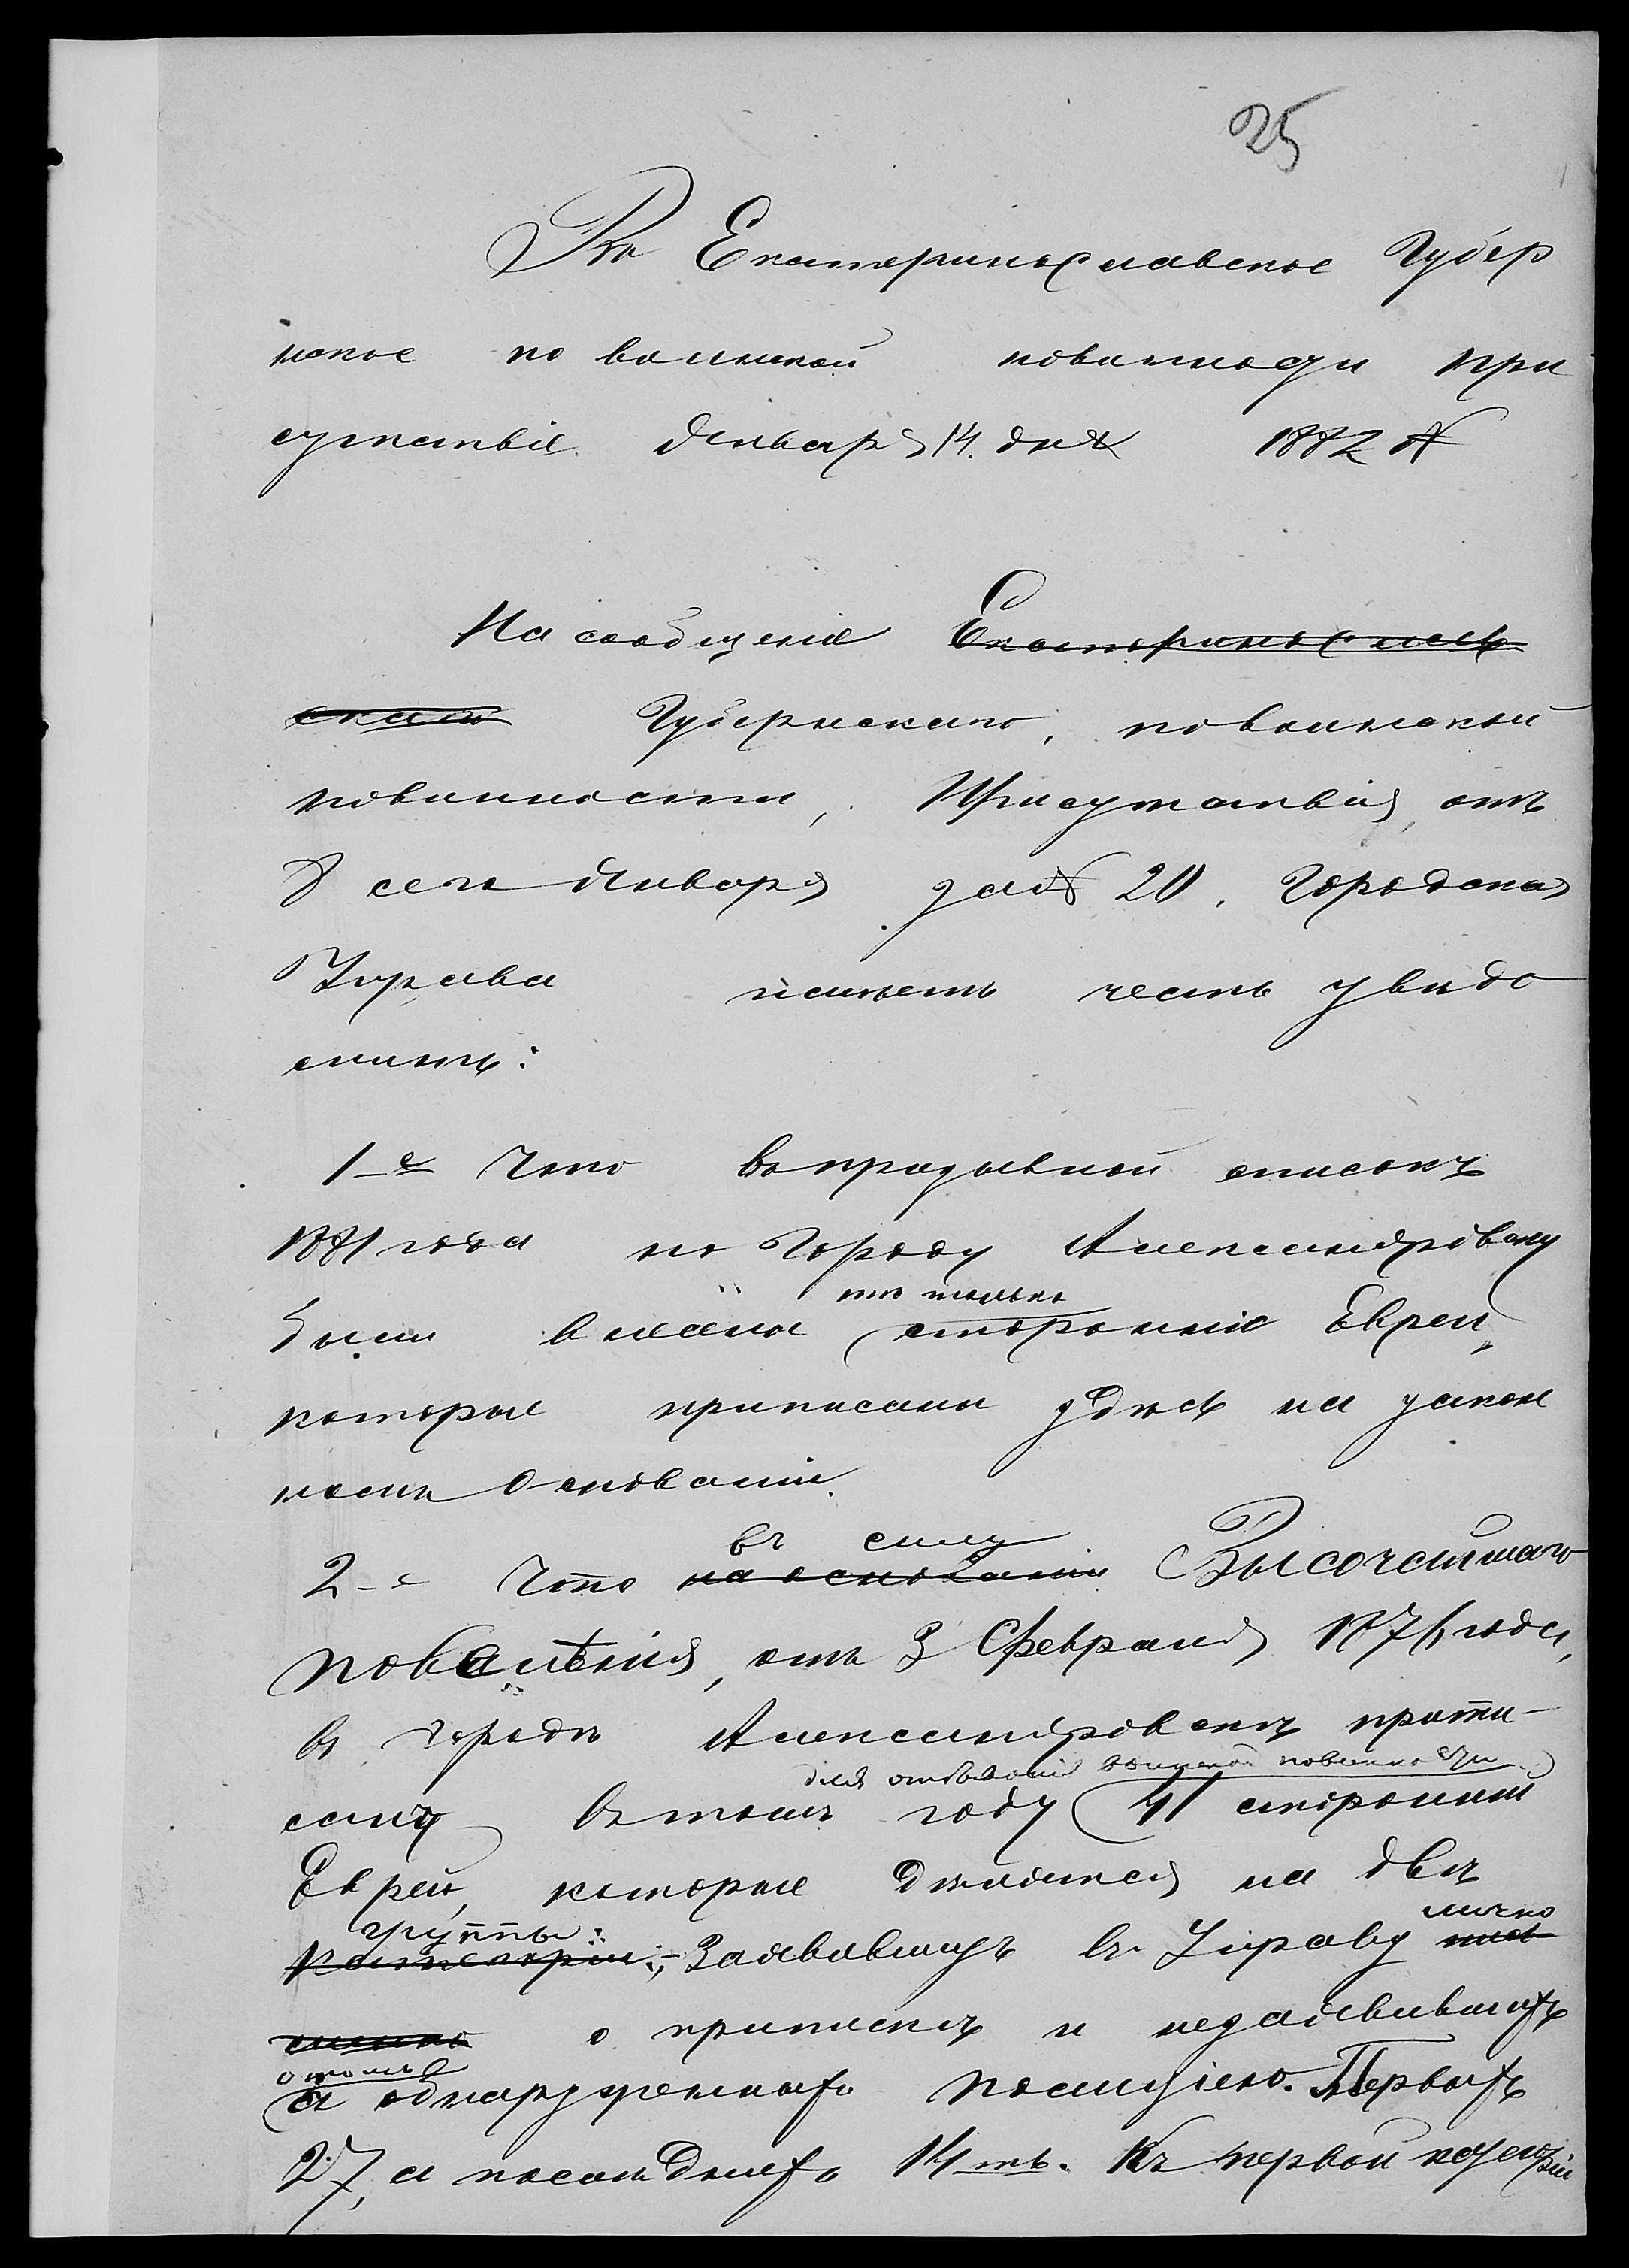 25
Въ Екатеринославское Губер
нское по воинской повинности при
сутствіе Января 14. дня 1882 №
На сообщеніе Екатеринослав
скаго Губернскаго, по воинской
повинности, Присутствія, отъ
8 сего Января за № 20, Городская
Управа имѣетъ честь увѣдо
мить:
1-е Что въ призывной списокъ
1881 года по Городу Александровску
были внесены
тѣ только
сторонніе Евреи,
которые приписаны здѣсь на закон
номъ основаніи.
въ силу
2-е Что на основаніи Высочайшаго
повелѣнія, отъ 3 Февраля 1876 года,
въ городѣ Александровскѣ припи-
для отбыванія воинской повинности
санъ въ томъ году 41 сторонній
Еврей, которые дѣлятся на двѣ
группы: лично
категоріи:, - Заявившихъ въ Управу
о припискѣ и незаявившихъ
о томъ
а обнаруженныхъ полиціею. Первыхъ
27, а послѣднихъ 14ть. Къ первой категоріи